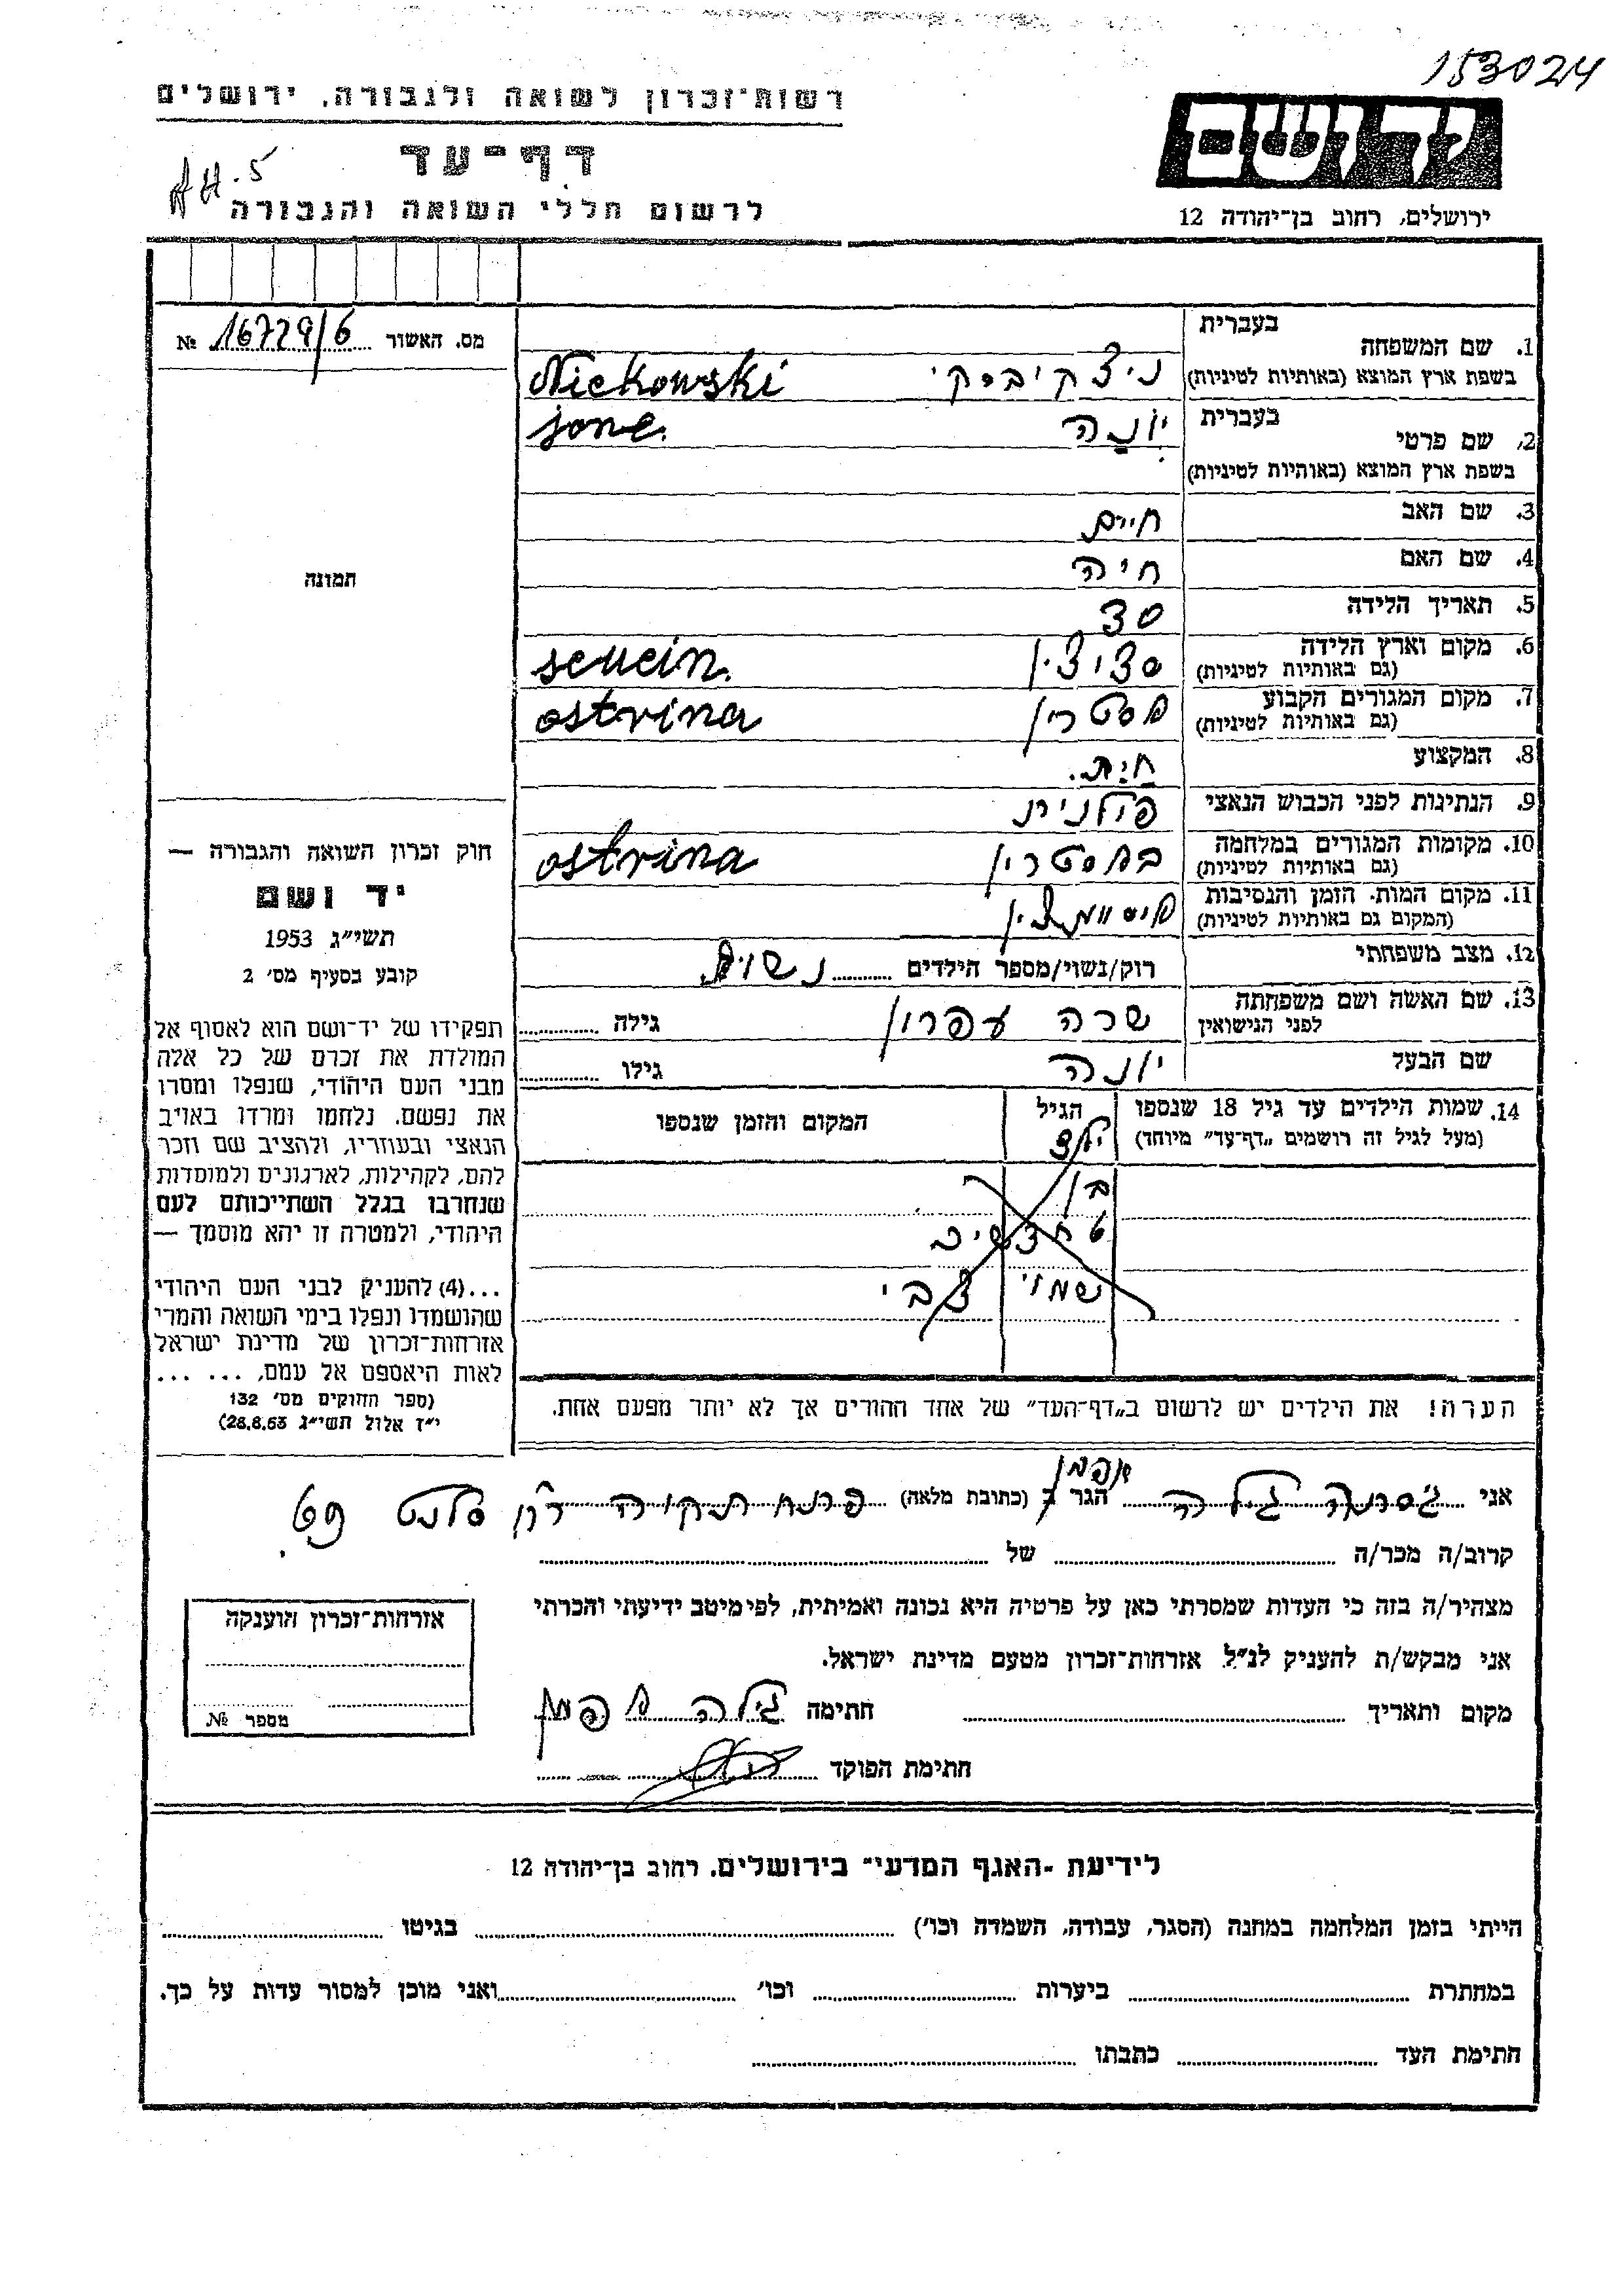 153024
רשות־זכרון לשואה ולגבורה, ירושלים
יד ושם
דף־עד
לרשום חללי השואה והגבורה
ירושלים, רחוב בן־יהודה 12
מס. האשור 16729/6 №
בעברית
1. שם המשפחה
בשפת ארץ המוצא (באותיות לטיניות) ניצקיבסקי Nickowski
בעברית יונה jone.
2. שם פרטי
בשפת ארץ המוצא (באותיות לטיניות)
3. שם האב חיים
4. שם האם חיה
5. תאריך הלידה 30
6. מקום וארץ הלידה
(גם באותיות לטיניות)
7. מקום המגורים הקבוע אסטרין ostrina
(גם באותיות לטיניות)
8. המקצוע חיט.
9. הנתינות לפני הכבוש הנאצי פולנית
10. מקומות המגורים במלחמה באסטרין ostrina
(גם באותיות לטיניות)
11. מקום המות, הזמן והנסיבות
(המקום גם באותיות לטיניות)
12. מצב משפחתי רוק/נשוי/מספר הילדים
13. שם האשה ושם משפחתה שרה עפרון גילה
לפני הנישואין
שם הבעל יונה גילו
תמונה
חוק זכרון השואה והגבורה —
יד ושם
תשי״ג 1953
קובע בסעיף מס׳ 2
תפקידו של יד־ושם הוא לאסוף אל
המולדת את זכרם של כל אלה
מבני העם היהודי, שנפלו ומסרו
את נפשם, נלחמו ומרדו באויב
הנאצי ובעוזריו, ולהציב שם וזכר
להם, לקהילות, לארגונים ולמוסדות
שנחרבו בגלל השתייכותם לעם
היהודי, ולמטרה זו יהא מוסמך —
...(4) להעניק לבני העם היהודי
שהושמדו ונפלו בימי השואה והמרי
אזרחות־זכרון של מדינת ישראל
לאות היאספם אל עמם, ... ...
(ספר החוקים מס׳ 132
י״ז אלול תשי״ג 28.8.53)
14. שמות הילדים עד גיל 18 שנספו הגיל המקום והזמן שנספו
(מעל לגיל זה רושמים „דף־עד״ מיוחד) ילד
בן
שמו צבי
הערה! את הילדים יש לרשום ב„דף־העד״ של אחד ההורים אך לא יותר מפעם אחת.
אני גילה הגר ב (כתובת מלאה) פתח תקוה סלנט
קרוב/ה מכר/ה של
מצהיר/ה בזה כי העדות שמסרתי כאן על פרטיה היא נכונה ואמיתית, לפי מיטב ידיעתי והכרתי
אני מבקש/ת להעניק לנ״ל אזרחות־זכרון מטעם מדינת ישראל.
מקום ותאריך חתימה גילה
חתימת הפוקד
אזרחות־זכרון הוענקה
מספר №
לידיעת -האגף המדעי״ בירושלים, רחוב בן־יהודה 12
הייתי בזמן המלחמה במחנה (הסגר, עבודה, השמדה וכו׳) בגיטו
במחתרת ביערות וכו׳ ואני מוכן למסור עדות על כך.
חתימת העד כתבתו